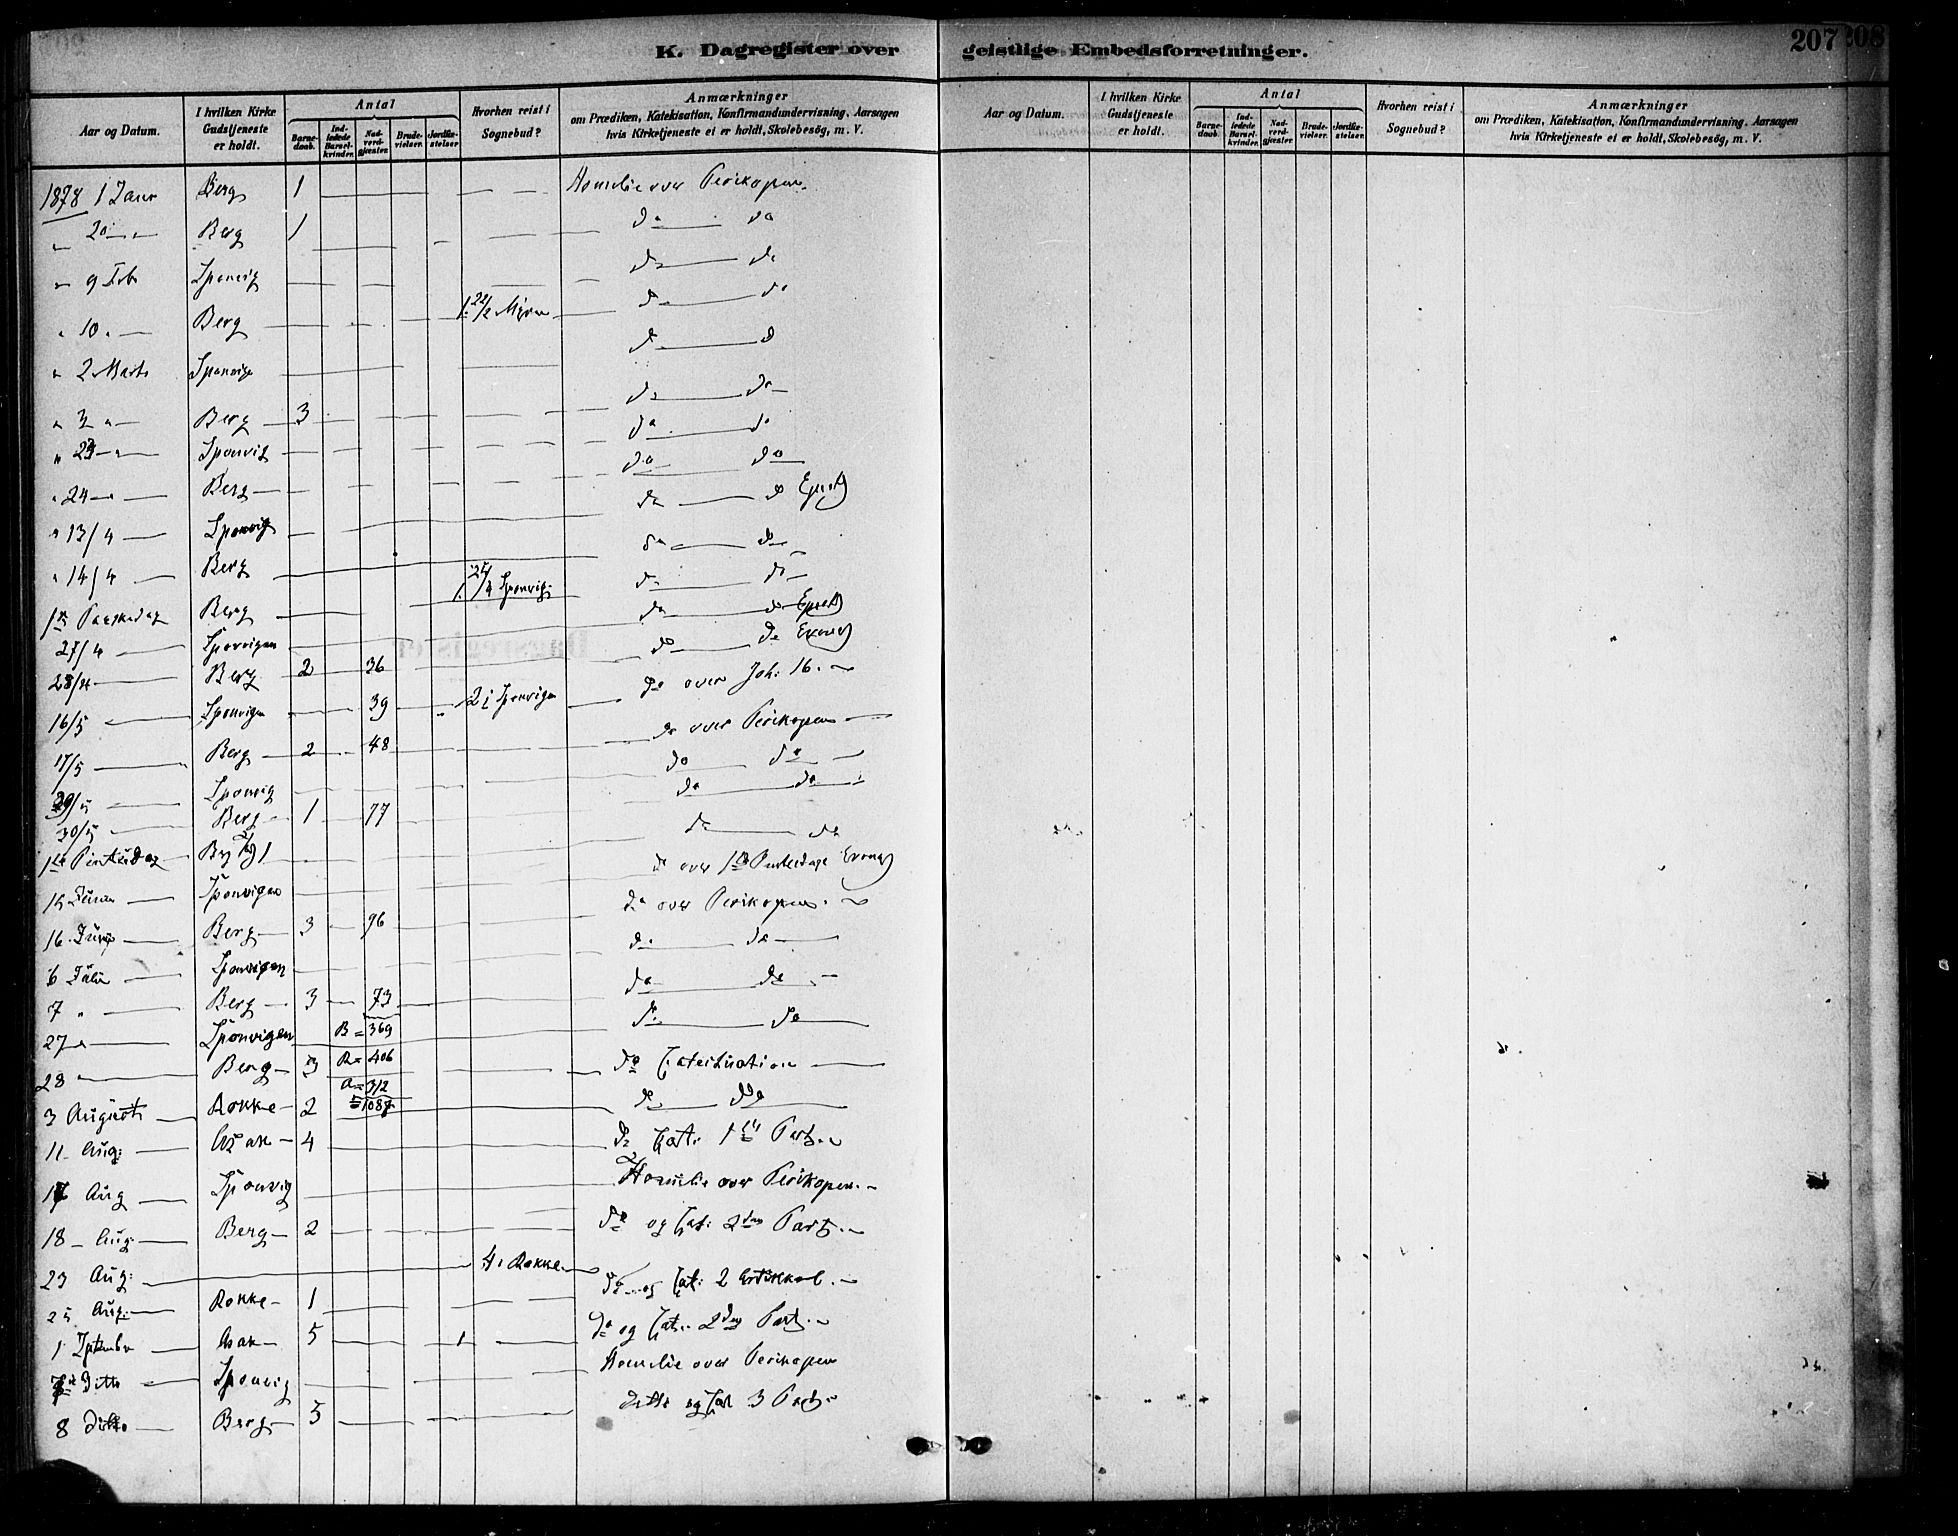 K. Dagregister over geistlige Embedsforretninger.
207
208
Aar og Datum.
I hvilken Kirke Gudstjeneste er holdt.
Antal
Barnedaab.
Indledede Barselkvinder.
Nadverdgjæster.
Brudevielser.
Jordfæstelser.
Hvorhen reist i Sognebud?
Anmærkninger
om Prædiken, Katekisation, Konfirmandundervisning. Aarsagen
hvis Kirketjeneste ei er holdt, Skolebesög, m. V.
Aar og Datum.
I hvilken Kirke Gudstjeneste er holdt.
Antal
Barnedaab.
Indledede Barselkvinder.
Nadverdgjæster.
Brudevielser.
Jordfæstelser.
Hvorhen reist i Sognebud?
Anmærkninger
om Prædiken, Katekisation, Konfirmandundervisning. Aarsagen
hvis Kirketjeneste ei er holdt, Skolebesög, m. V.
1878 1 Januar Berg 1 Homilie over Perikopen
" 20 " Berg 1 do do
" 9 Feb Sponvig do do
" 10 " Berg 1. 22/2 do do
" 2 Marts Sponvige do d
" 3 " Berg 3 do do
" 23 " Sponvig do do
" 24 " Berg do do
" 13/4 Sponvig do do
" 14/4 Berg do do
1ste Paaskedag Berg 1. 25/4 Sponvig do do
27/4 Sponvigen do do
28/4 Berg 2 36 do do
16/5 Sponvigen 39 2 i Sponvigen do over Joh. 16.
17/5 Berg 2 48 do over Perikopen
29/5 Sponvig do do
30/5 Berg 1 77 do do
1ste Pintsedag Berg do do
15 Juni Sponvigen do over 1ste Pintsedags
16. Juni Berg 3 96 do over Perikopen.
6 Juli Sponvigen do do
7 " Berg 3 73 do do
27 " Sponvigen B = 369 do do
28 " Berg 3 R = 406 do Catechisation
3 August Rokke 2 A = 312 do do
= 1087
11 Aug: Asak 4 do Cat. 1ste Part.
17 Aug Sponvig Homilie over Perikopen.
18 Aug: Berg 2 do og Cat: 2den Part.
23 Aug: 4 i Rokke
25 Aug: Rokke 1 do og Cat: 2 Artikkel.
1 September Asak 5 1 do og Cat. 2den Part.
7de Ditto Sponvig Homilie over Perikopen
8 Ditto Berg 5 ditto og Cat 3 Part.